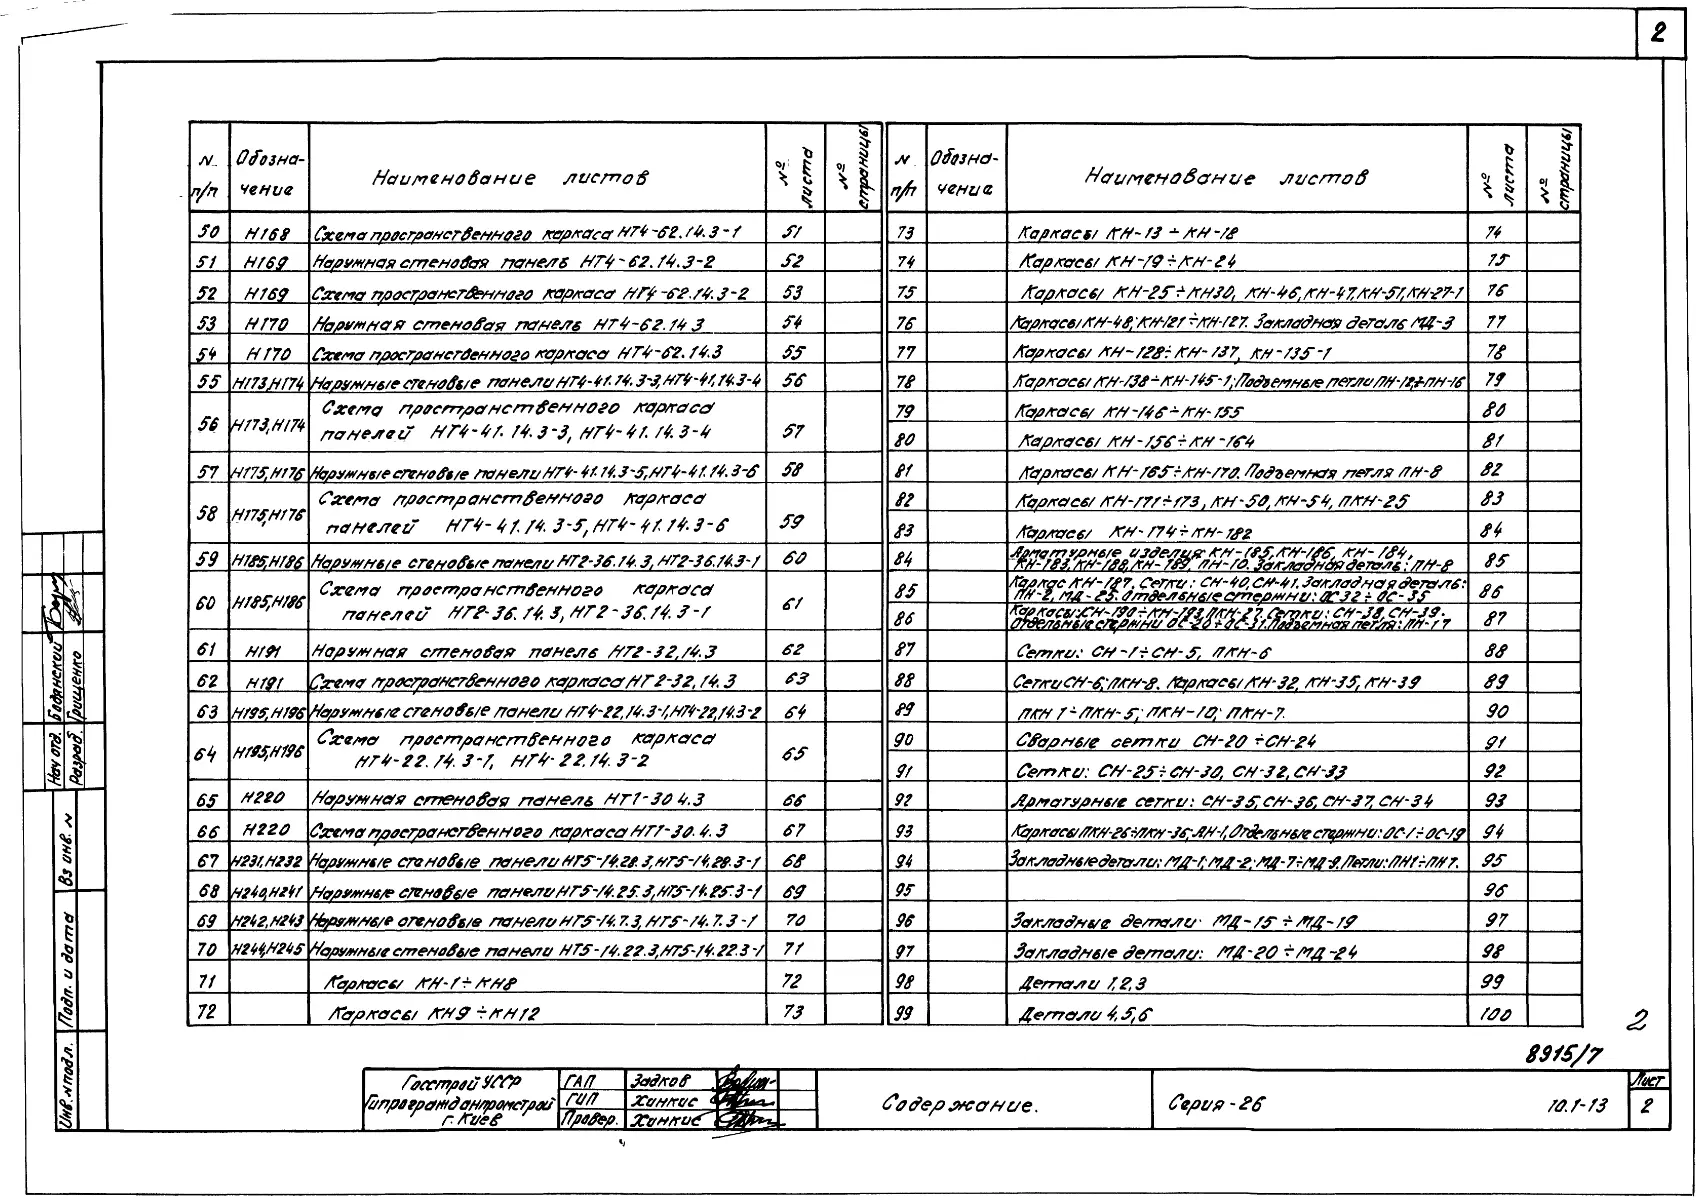 2
N п/п Обозначение Наименование листов № листа № страницы
50 Н168 Схема пространственного каркаса НТ4-62.14.3-1 51
51 Н169 Наружная стеновая панель НТ4-62.14.3-2 52
52 Н169 Схема пространственного каркаса НТ4-62.14.3-2 53
53 Н170 Наружная стеновая панель НТ4-62.14 3 54
54 Н170 Схема пространственного каркаса НТ4-62.14.3 55
55 Н173,Н174 Наружные стеновые панели НТ4-41.14.3-3,НТ4-41.14.3-4 56
56 Н173,Н174 Схема пространственного каркаса
панелей НТ4-41.14.3-3, НТ4-41.14.3-4 57
57 Н175,Н176 Наружные стеновые панели НТ4-41.14.3-5,НТ4-41.14.3-6 58
58 Н175,Н176 Схема пространственного каркаса
панелей НТ4-41.14.3-5, НТ4-41.14.3-6 59
59 Н185,Н186 Наружные стеновые панели НТ2-36.14.3, НТ2-36.14.3-1 60
60 Н185,Н186 Схема пространственного каркаса
панелей НТ2-36.14.3, НТ2-36.14.3-1 61
61 Н191 Наружная стеновая панель НТ2-32,14.3 62
62 Н191 Схема пространственного каркаса НТ2-32,14.3 63
63 Н195,Н196 Наружные стеновые панели НТ4-22,14.3-1,НТ4-22,14.3-2 64
64 Н195,Н196 Схема пространственного каркаса
НТ4-22.14.3-1, НТ4-22.14.3-2 65
65 Н220 Наружная стеновая панель НТ1-30 4.3 66
66 Н220 Схема пространственного каркаса НТ1-30.4.3 67
67 Н231,Н232 Наружные стеновые панели НТ5-14.28.3,НТ5-14.28.3-1 68
68 Н240,Н241 Наружные стеновые панели НТ5-14.25.3,НТ5-14.25.3-1 69
69 Н242,Н243 Наружные стеновые панели НТ5-14.7.3,НТ5-14.7.3-1 70
70 Н244,Н245 Наружные стеновые панели НТ5-14.22.3,НТ5-14.22.3-1 71
71 Каркасы КН-1÷КН8 72
72 Каркасы КН9÷КН12 73
N п/п Обозначение Наименование листов № листа № страницы
73 Каркасы КН-13÷КН-18 74
74 Каркасы КН-19÷КН-24 75
75 Каркасы КН-25÷КН30, КН-46,КН-47,КН-51,КН-27-1 76
76 Каркасы КН-48;КН-121÷КН-127. Закладная деталь МД-3 77
77 Каркасы КН-128÷КН-137, КН-135-1 78
78 Каркасы КН-138÷КН-145-1;Подъемные петли ПН-12÷ПН-16 79
79 Каркасы КН-146÷КН-155 80
80 Каркасы КН-156÷КН-164 81
81 Каркасы КН-165÷КН-170.Подъемная петля ПН-8 82
82 Каркасы КН-171÷173, КН-50,КН-54, ПКН-25 83
83 Каркасы КН-174÷КН-182 84
84 Арматурные изделия: КН-185,КН-186, КН-184,
КН-183,КН-188,КН-189, ПН-10.Закладная деталь: ПН-8 85
85 Каркас КН-187. Сетки: СН-40,СН-41.Закладная деталь:
ПН-2, МД-25.Отдельные стержни: ОС32÷ОС-35 86
86 Каркасы:СН-190÷КН-193,ПКН-27.Сетки: СН-38,СН-39.
Отдельные стержни ОС-20÷ОС-31.Подъемная петля: ПН-17 87
87 Сетки: СН-1÷СН-5, ПКН-6 88
88 Сетки СН-6;ПКН-8. Каркасы КН-32, КН-35, КН-39 89
89 ПКН 1÷ПКН-5; ПКН-10; ПКН-7. 90
90 Сварные сетки СН-20÷СН-24 91
91 Сетки: СН-25÷СН-30, СН-32,СН-33 92
92 Арматурные сетки: СН-35,СН-36,СН-37,СН-34 93
93 Каркасы ПКН-26÷ПКН-36;АН-1,Отдельные стержни:ОС-1÷ОС-19 94
94 Закладные детали: МД-1; МД-2; МД-7÷МД-9.Петли:ПН1÷ПН7. 95
95 96
96 Закладные детали: МД-15÷МД-19 97
97 Закладные детали: МД-20÷МД-24 98
98 Детали 1,2,3 99
99 Детали 4,5,6 100
2
8915/7
Госстрой УССР
Гипрогражданпромстрой
г. Киев
ГАП Задков
ГИП Хинкис
Провер. Хинкис
Содержание.
Серия-26
10.1-13
Лист
2
Нач отд. Боданский
Разраб. Грищенко
Вз инв. N
Подп. и дата
Инв.Nподл.